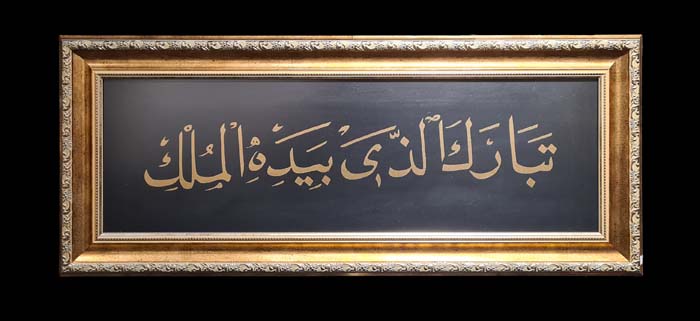 تَبَارَكَ الَّذِي بِيَدِهِ الْمُلْكُ